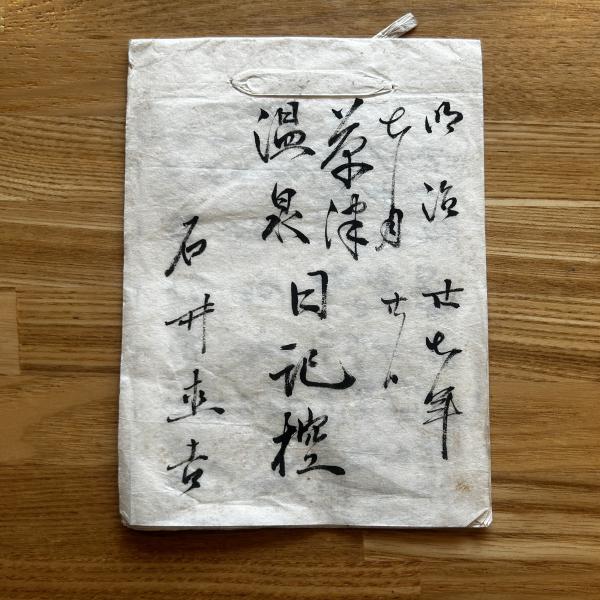 明治廿七年
七月廿日
草津
温泉
日記控
石井吉